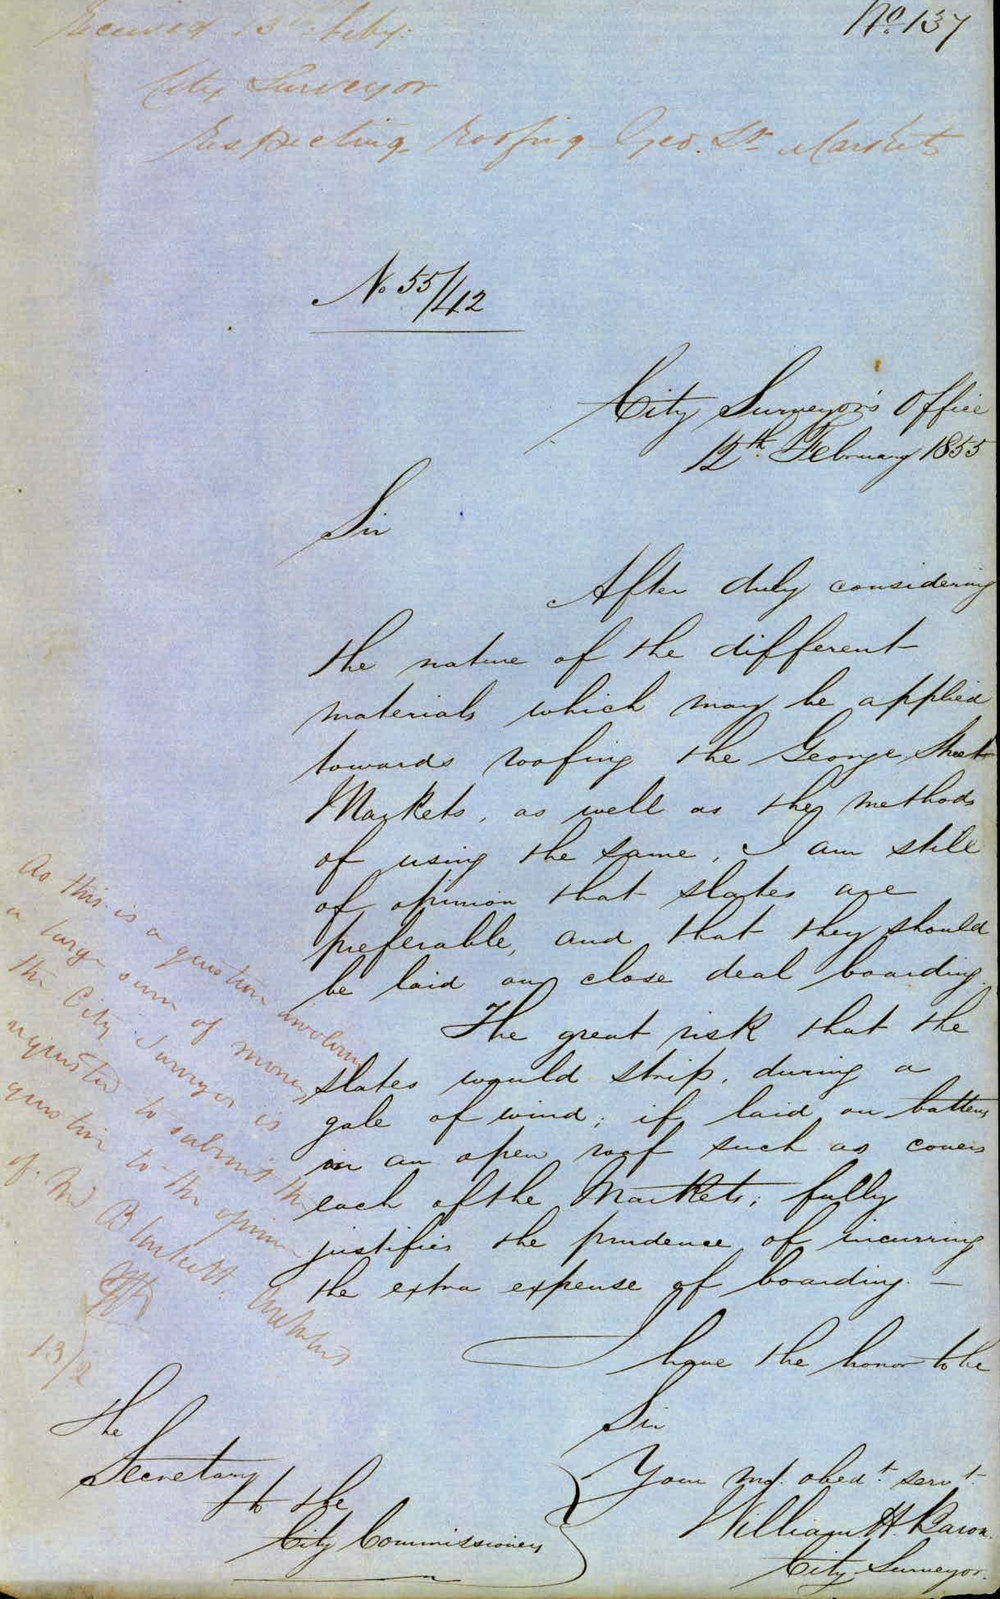 No. 137
Received 13th Feby.
City Surveyor
Respecting roofing Geo. St. Markets
No 55/142
City Surveyor's Office
12th February 1855
Sir
After duly considering
the nature of the different
materials which may be applied
towards roofing the George Street
Markets, as well as the methods
of using the same, I am still
of opinion that slates are
preferable, and that they should
be laid on close deal boarding.
The great risk that the
slates would strip, during a
gale of wind; if laid on battens
in an open roof such as covers
each of the Markets; fully
justifies the prudence of incurring
the extra expense of boarding. —
As this is a question involving
a large sum of money,
the City Surveyor is
requested to submit the
question to the opinion
of Mr Blackett Architect
13/2
I have the honor to be
Sir
Your mt. obedt. servt.
William H Baron.
City Surveyor.
The
Secretary
to the
City Commissioners